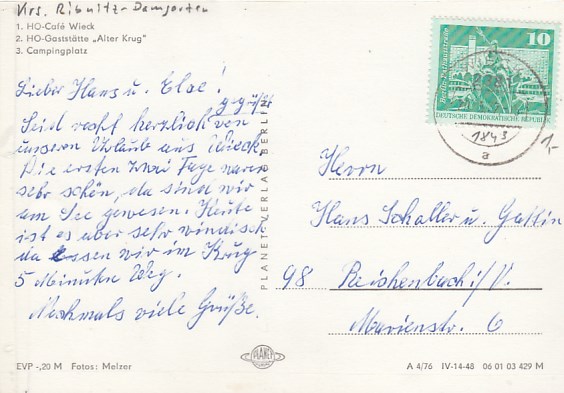 Krs. Ribnitz-Damgarten
1. HO-Café Wieck
2. HO-Gaststätte „Alter Krug"
3. Campingplatz
Lieber Hans u. Else!
Seid recht herzlich von gegrüßt
unseren Urlaub aus Wieck.
Die ersten zwei Tage waren
sehr schön, da sind wir
am See gewesen. Heute
ist es aber sehr windisch
da essen wir im Krug
5 Minuten Weg.
Nochmals viele Grüße.
EVP -,20 M Fotos: Melzer
PLANET-VERLAG BERLIN
PLANET
10
Berlin, Rathausstraße
DEUTSCHE DEMOKRATISCHE REPUBLIK
1843
a
1,-
Herrn
Hans Schaller u. Gattin
98 Reichenbach i/V.
Marienstr. 6
A 4/76 IV-14-48 06 01 03 429 M